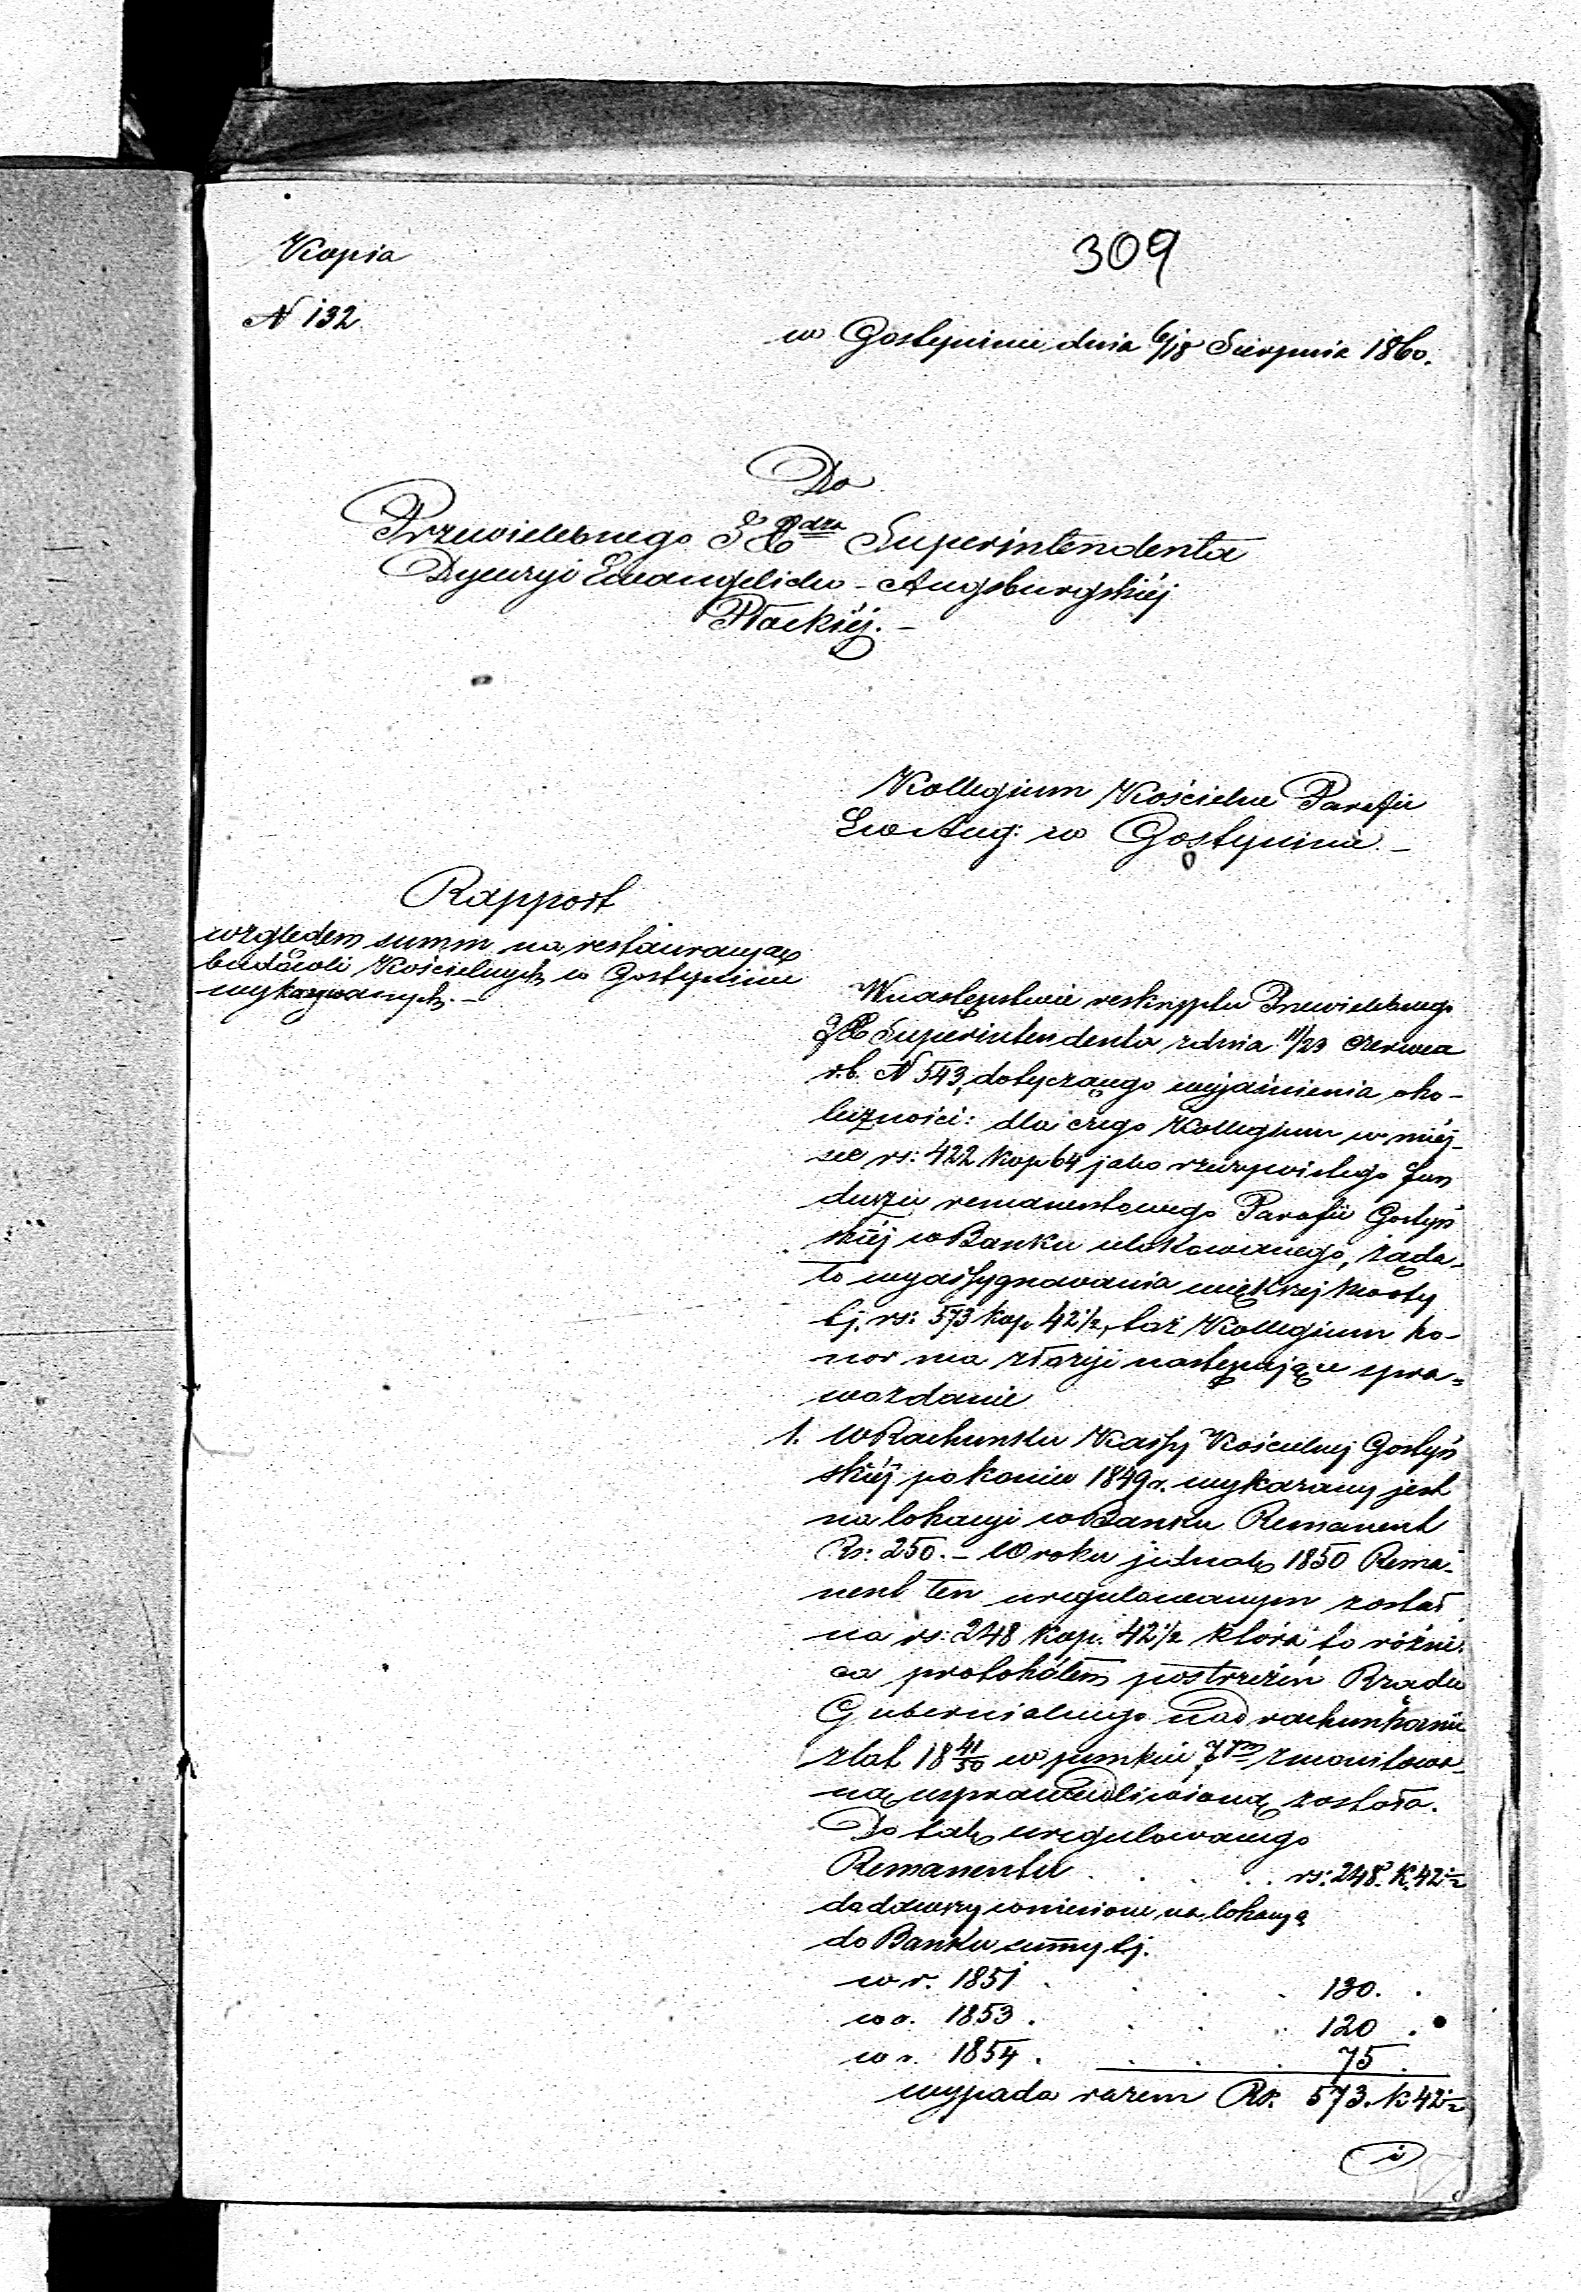 Kopia
309
N 132
w Gostyninie dnia 6/18 Sierpnia 1860.
Do
Przewielebnego JXdza Superintendenta
Dyecezyi Ewangelicko-Augsburgskiéj
Płockiéj.-
Kollegium Kościelne Parafii
Ew Aug: w Gostyninie -
Rapport
względem summ na restauracyą
budowli Kościelnych w Gostyninie
wykazywanych.-
W następstwie reskryptu Przewielebnego
JX Superintendenta z dnia 11/23 Czerwca
r.b. N 543, dotyczącego wyjaśnienia oko-
liczności: dla czego Kollegium w miéj-
sce rs: 422 kop 64 jako rzeczywistego fun
duszu remanentowego Parafii Gostyń
skiéj w Banku ulokowanego, żąda-
ło wyassygnowania większej kwoty
tj. rs: 573 kop. 42½, toż Kollegium ho-
nor ma złożyć następujące spra=
wozdanie
1. W Rachunku Kassy Kościelnej Gostyń
skiéj po koniec 1849 r. wykazany jest
na lokacyi w Banku Remanent
Rs: 250.- W roku jednak 1850 Rema-
nent ten uregulowanym został
na rs: 248 kop. 42½ która to różni-
ca protokółem postrzeżeń Rządu
Gubernialnego nad rachunkami
z lat 18 41/50 w punkcie 7ym zmonitowa-
ną usprawiedliwioną została.
Do tak uregulowanego
Remanentu . . . . rs: 248. K. 42½
dodawszy wniesione na lokacyą
do Banku summy tj.
w r. 1851 . . . . 130. .
w r. 1853 . . . . 120 .
w r. 1854 . . . . 75 .
wypada razem Rs. 573. k 42½
i